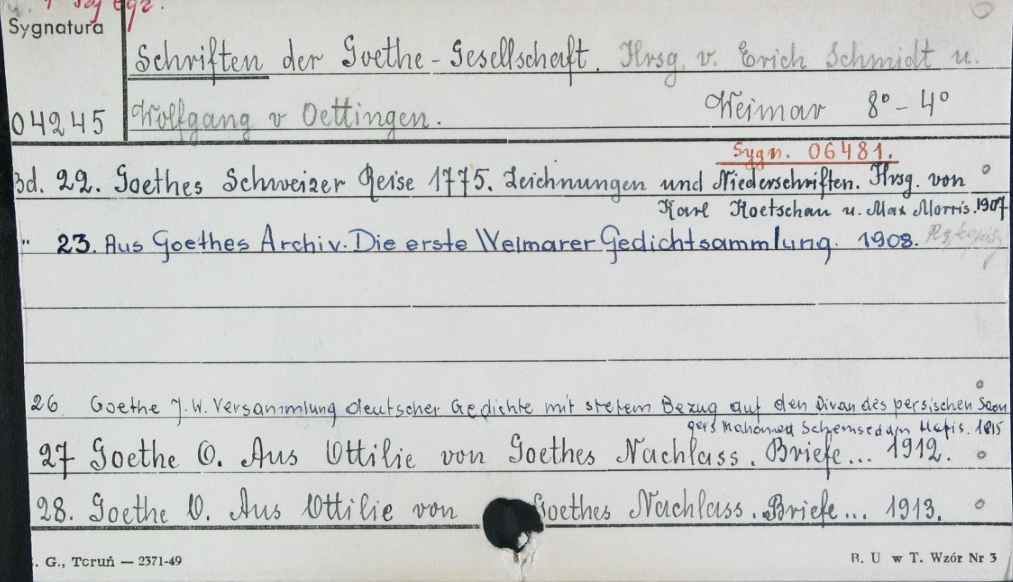 Sygnatura
Schriften der Goethe-Gesellschaft. Hrsg. v. Erich Schmidt u.
04245 Wolfgang v Oettingen. Weimar 8° - 4°
Sygn. 06481.
Bd. 22. Goethes Schweizer Reise 1775. Zeichnungen und Niederschriften. Hrsg. von
Karl Koetschau u. Max Morris. 1907
" 23. Aus Goethes Archiv. Die erste Weimarer Gedichtsammlung. 1908.
26 Goethe J. W. Versammlung deutscher Gedichte mit stetem Bezug auf den Divan des persischen Saen
gers Mahomed Schemseddin Hafis. 1815
27 Goethe O. Aus Ottilie von Goethes Nachlass. Briefe... 1912.
28. Goethe O. Aus Ottilie von Goethes Nachlass. Briefe... 1913.
. G., Toruń — 2371-49
B. U w T. Wzór Nr 3